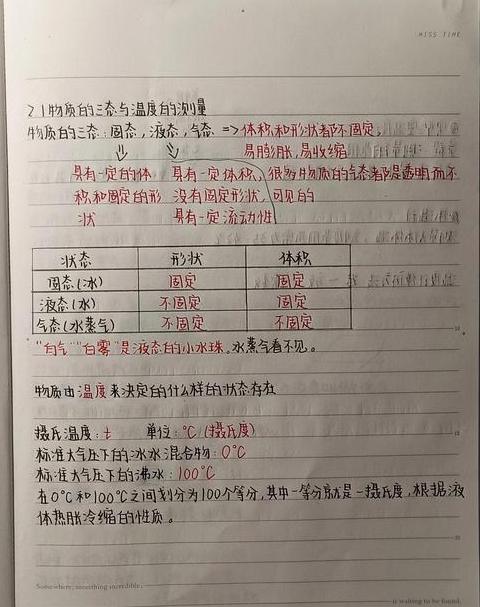 MISS TIME
2.1物质的三态与温度的测量
物质的三态:固态,液态,气态 => 体积和形状都不固定,
易膨胀,易收缩
具有一定的体 具有一定体积, 很多物质的气态都是透明而不
积和固定的形 没有固定形状, 可见的
状 具有一定流动性
状态 形状 体积
固态(冰) 固定 固定
液态(水) 不固定 固定
气态(水蒸气) 不固定 不固定
"白气""白雾"是液态的小水珠.水蒸气看不见。
物质由温度来决定的什么样的状态存在
摄氏温度:t 单位:℃(摄氏度)
标准大气压下的冰水混合物:0℃
标准大气压下的沸水:100℃
在0℃和100℃之间划分为100个等分,其中一等分就是一摄氏度,根据液
体热胀冷缩的性质。
Somewhere, something incredible,
is waiting to be found.